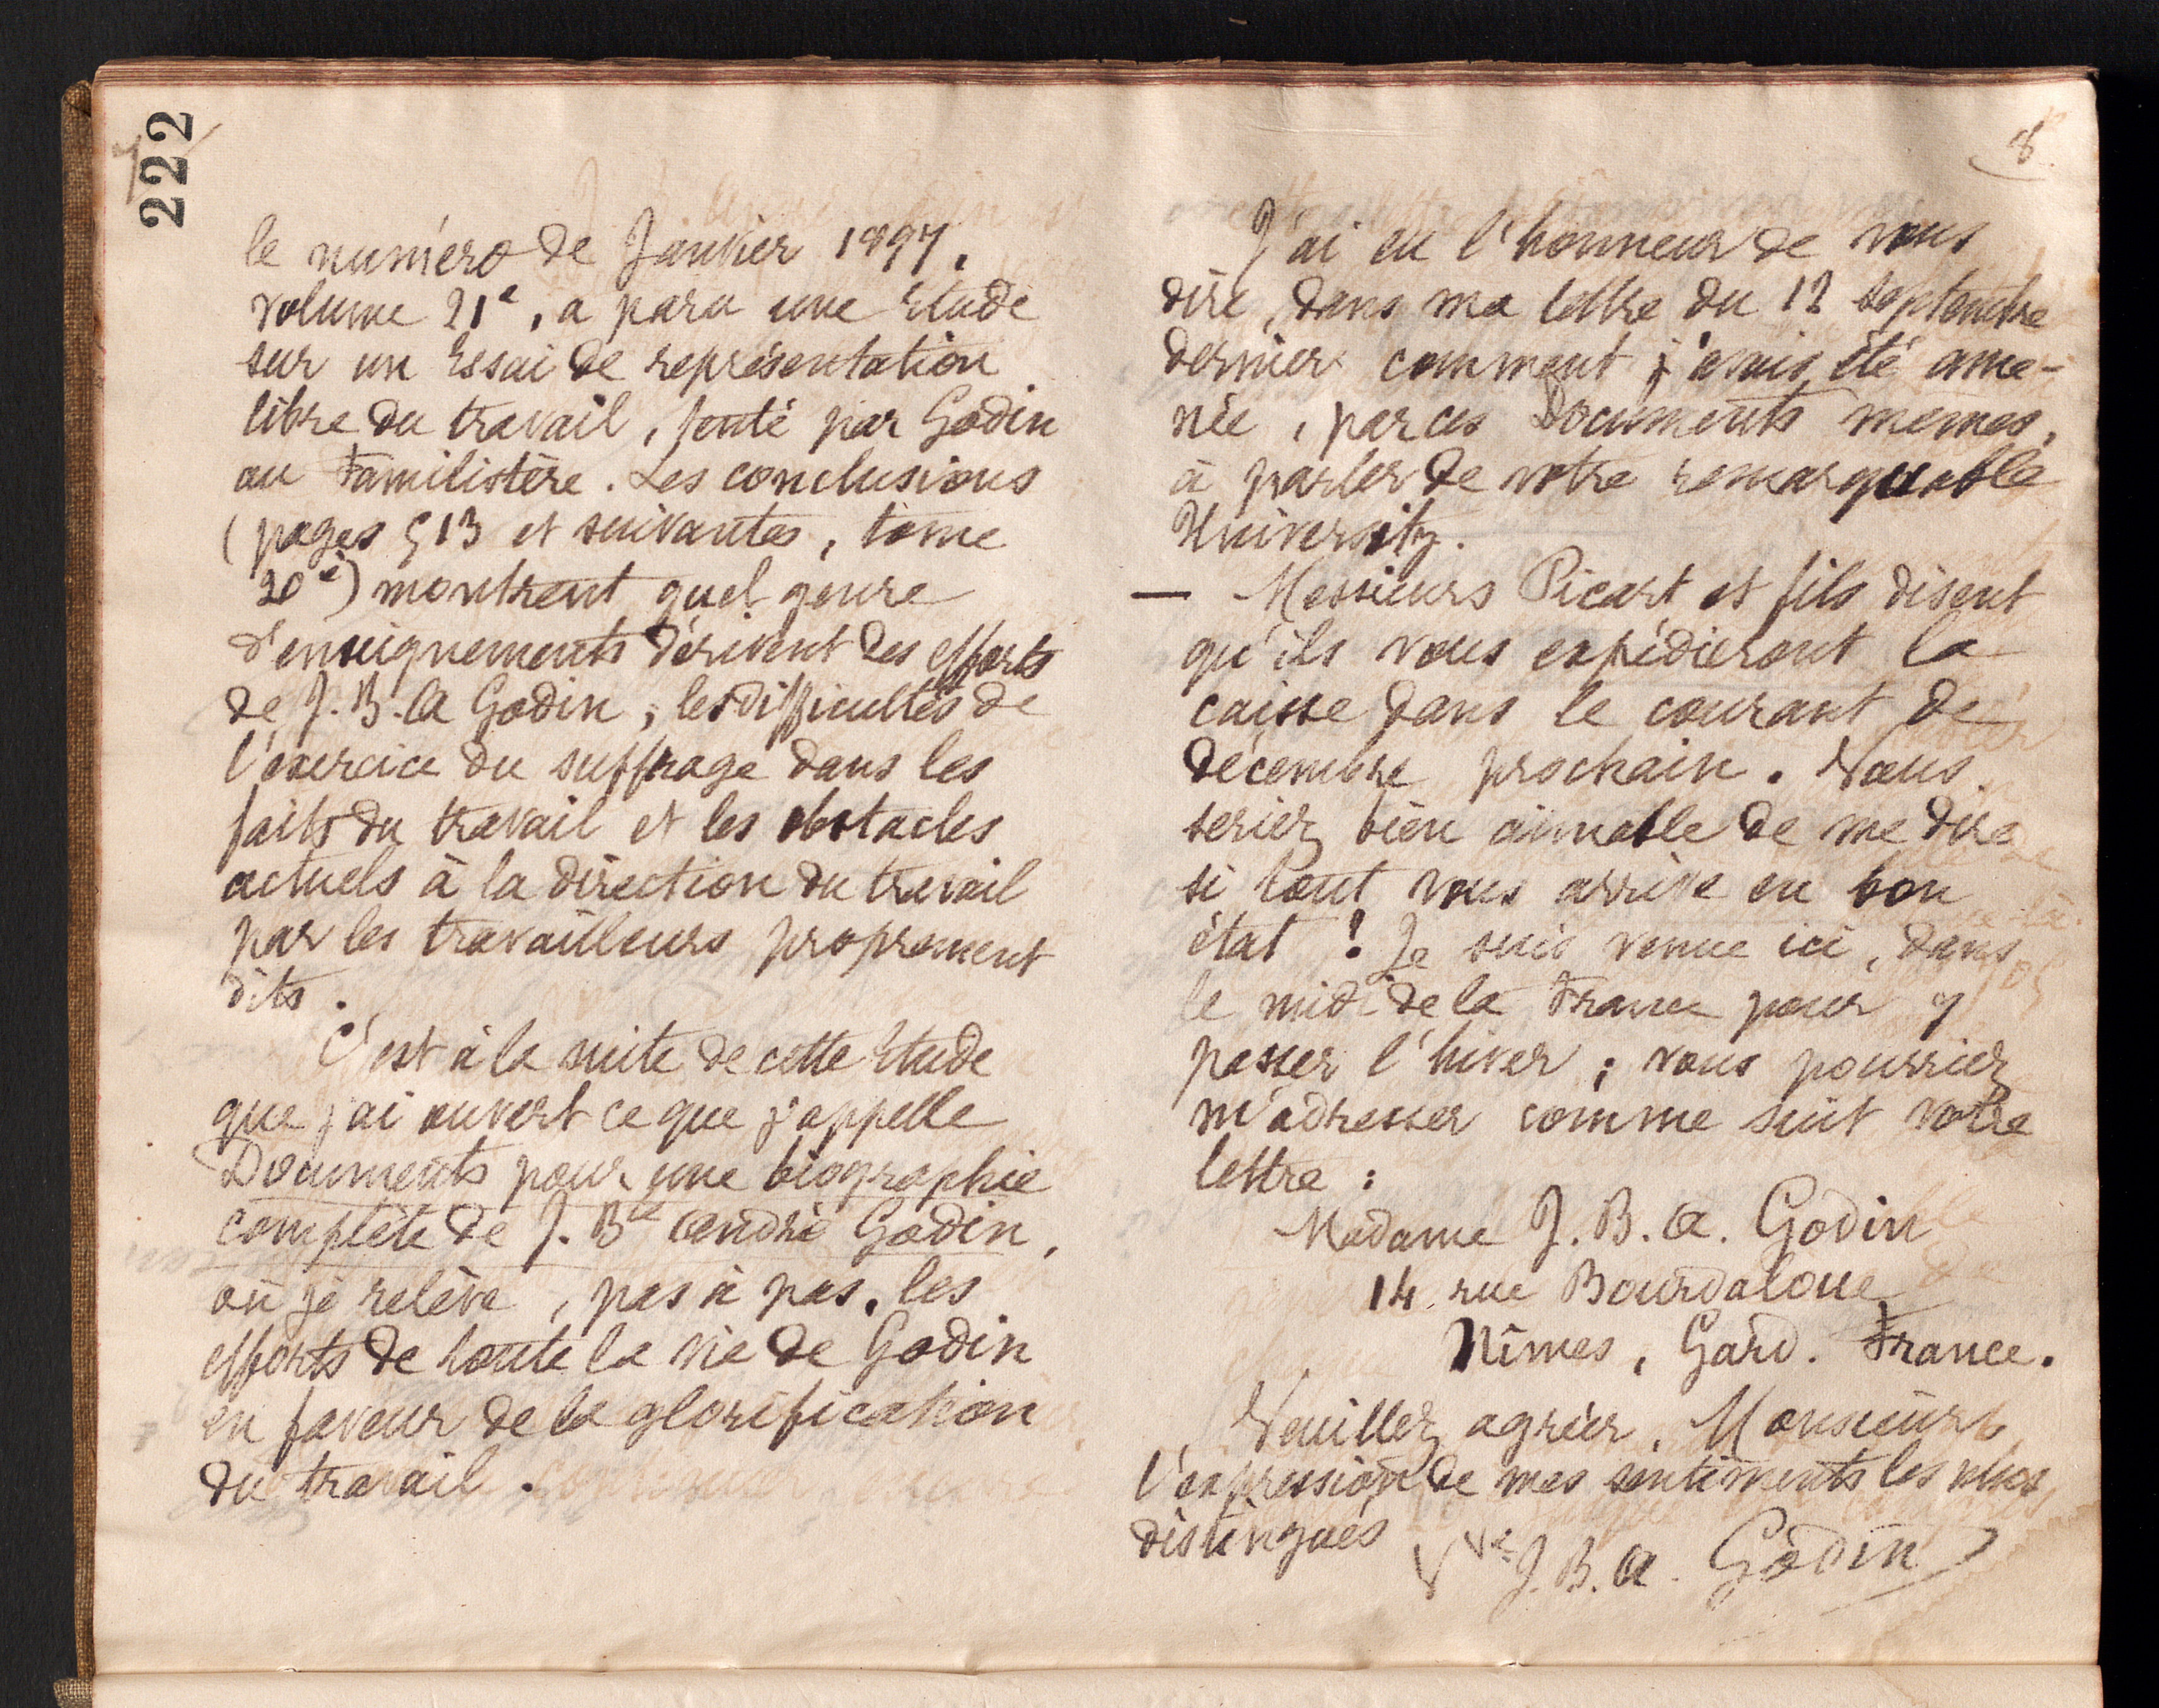 222
7
le numéro de Janvier 1897,
volume 21e, a paru une Etude
sur un Essai de représentation
libre du travail, tenté par Godin
au Familistère. Les conclusions
(pages 513 et suivantes, tome
20e) montrent quel genre
d'enseignements dérivent des efforts
de J. B. A Godin; les difficultés de
l'exercice du suffrage dans les
faits du travail et les obstacles
actuels à la direction du travail
par les travailleurs proprement
dits.
C'est à la suite de cette Etude
que j'ai ouvert ce que j'appelle
Documents pour une biographie
complète de J. Bte André Godin,
où je relève, pas à pas, les
efforts de toute la vie de Godin
en faveur de la glorification
du travail.
8
J'ai eu l'honneur de vous
dire, dans ma lettre du 12 septembre
dernier comment j'avais été ame-
née, par ces Documents mêmes,
à parler de votre remarquable
University.
— Messieurs Picart et fils disent
qu'ils vous expédieront la
caisse dans le courant de
décembre prochain. Vous
seriez bien aimable de me dire
si tout vous arrive en bon
état! Je suis venue ici, dans
le midi de la France pour y
passer l'hiver; vous pourriez
m'adresser comme suit votre
lettre:
Madame J. B. A. Godin
14 rue Bourdaloue
Nîmes, Gard. France.
Veuillez agréer, Monsieur,
l'expression de mes sentiments les plus
distingués
Vve J. B. A. Godin